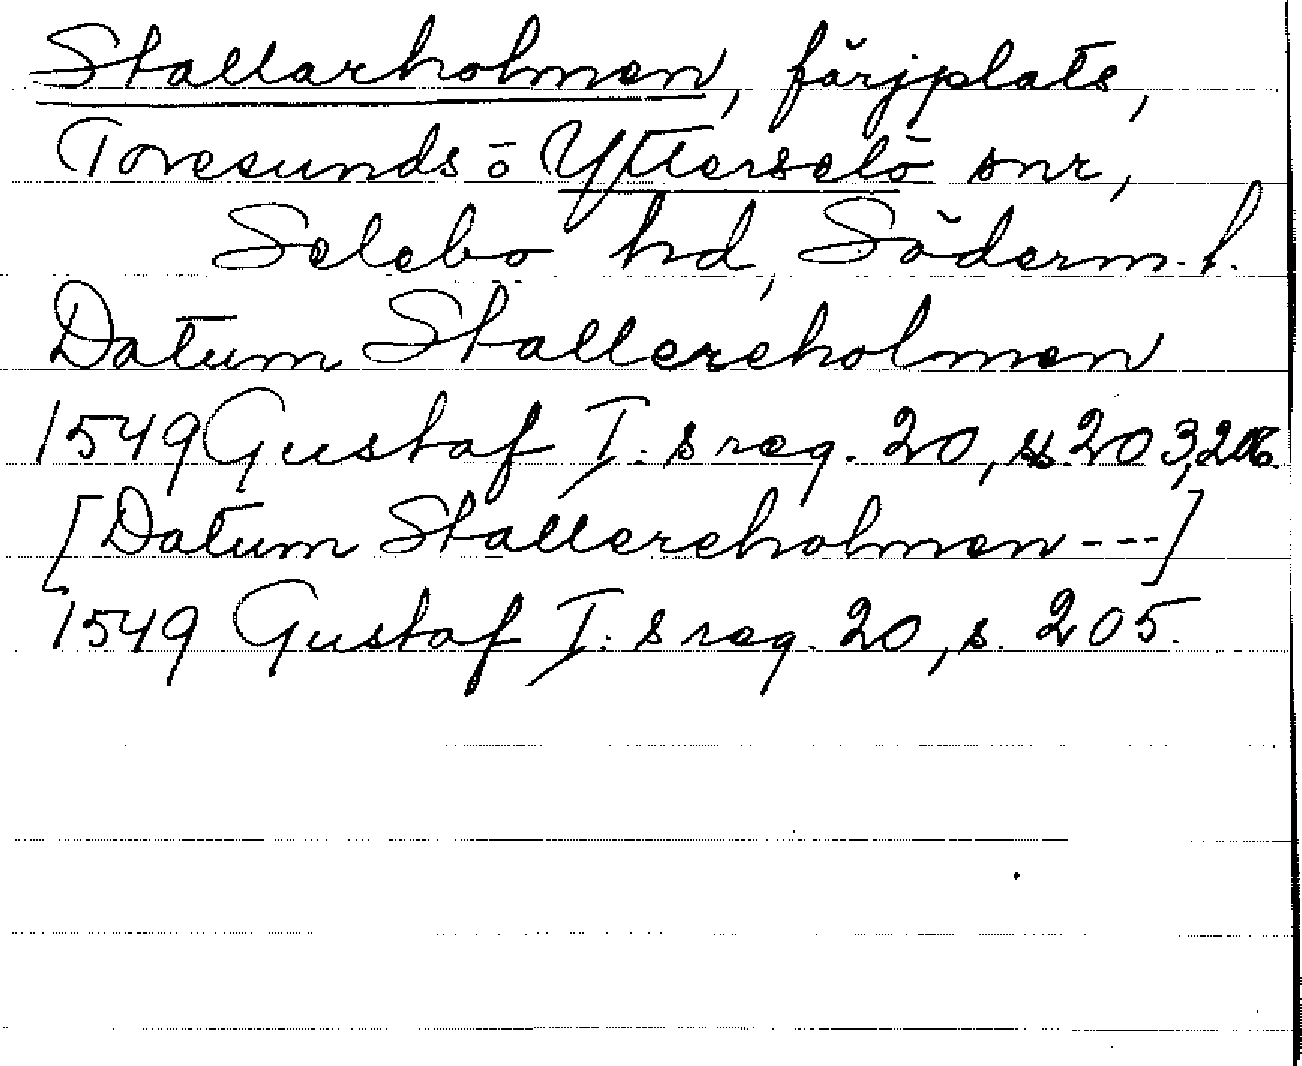 Stallarholmen, färjplats,
Toresunds o Ytterselö snr,
Selebo hd, Söderm. l.
Datum Stallereholmen
1549 Gustaf I:s reg. 20, ss. 203, 206.
[Datum Stallereholmen ---]
1549 Gustaf I:s reg. 20, s. 205.